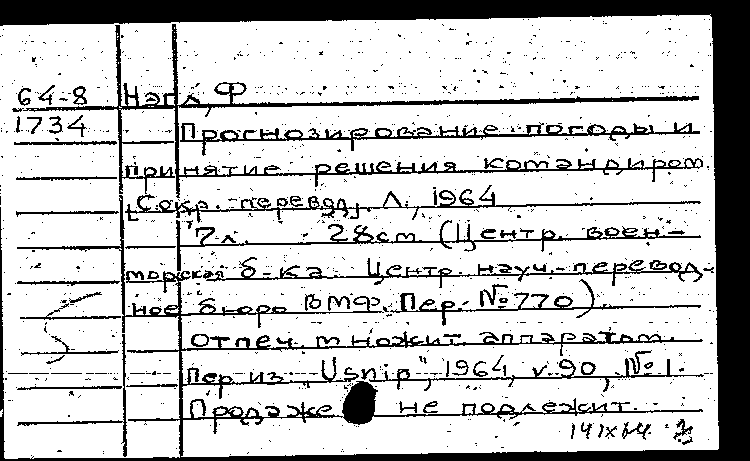 64-8 Нэгл, Ф
1734 Прогнозирование погоды и
принятие решения командиром.
[Сокр. перевод]. Л., 1964
7 л. 28 cm (Центр. воен-
морская б-ка. Центр. науч.-перевод-
ное бюро ВМФ. Пер. №770).
Отпеч. множит. аппаратом.
Пер. из: „Usnip“, 1964, v. 90, №1.
Продаже не подлежит.
14 IX 64